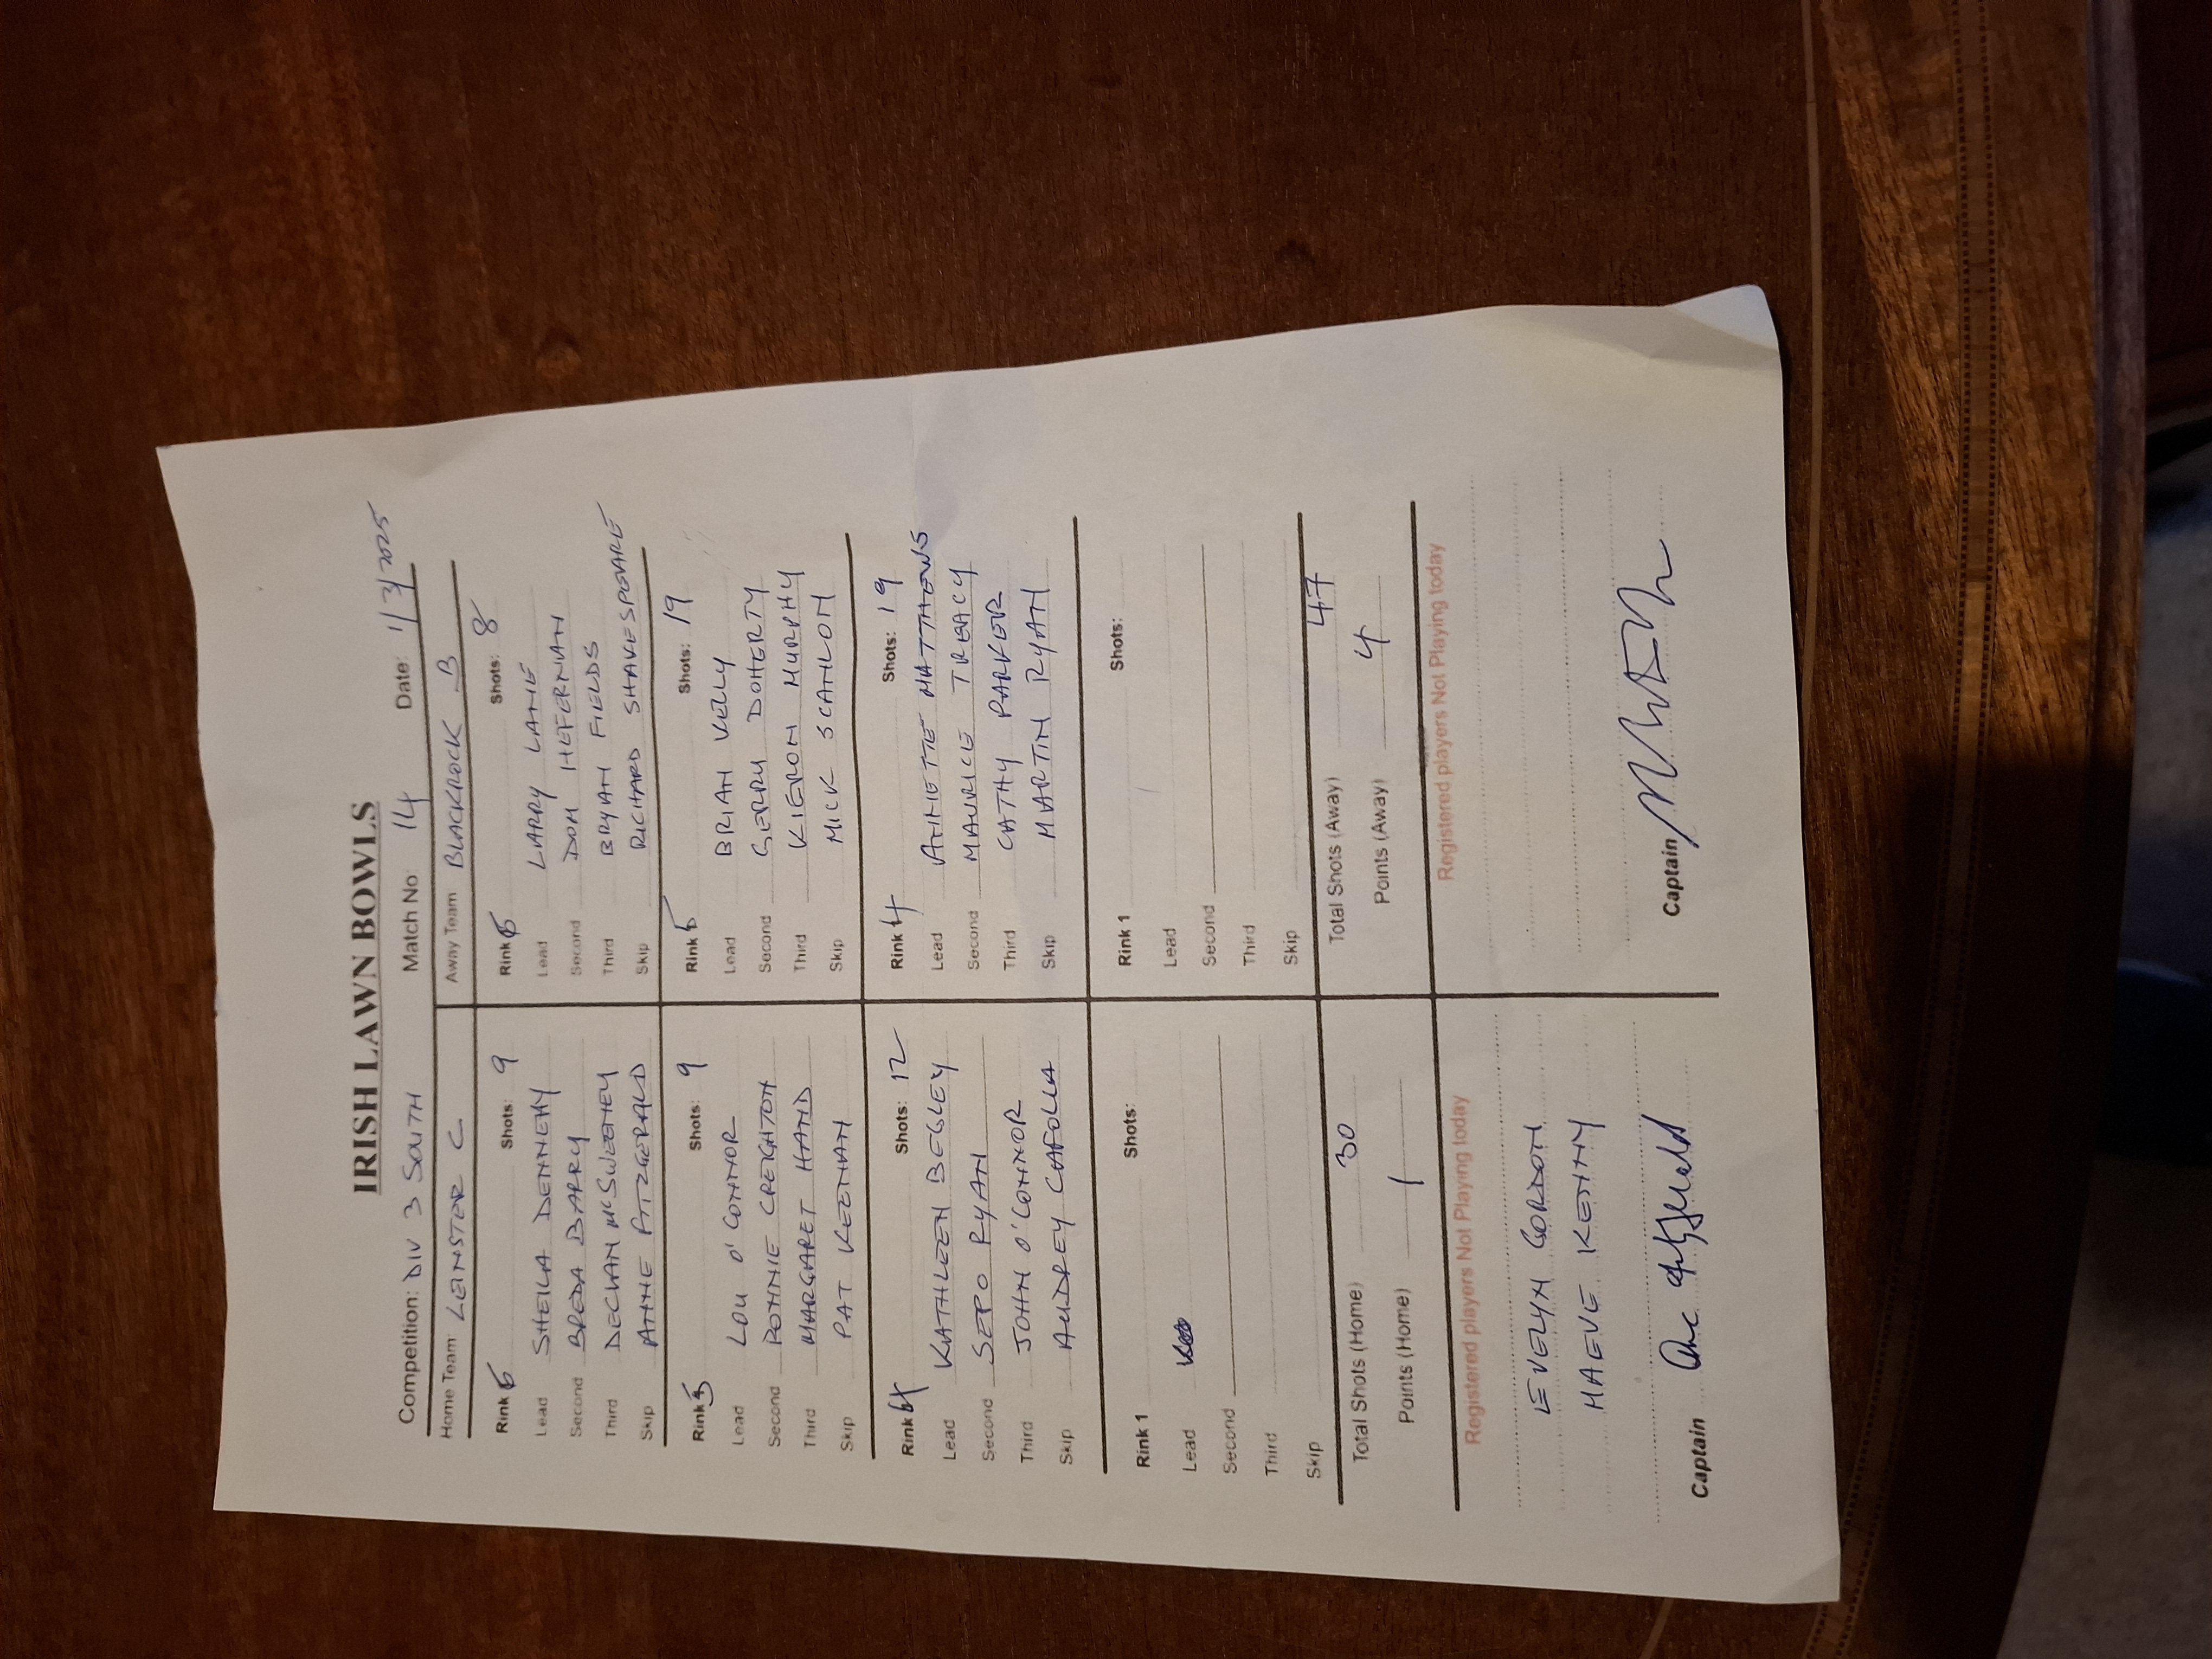 IRISH LAWN BOWLS
Competition: DIV 3 SOUTH Match No 14 Date: 1/3/2025
Home Team LEINSTER C Away Team BLACKROCK B
Rink 6 Shots: 9 Rink 6 Shots: 8
Lead SHEILA DENNEHY Lead LARRY LANE
Second BREDA BARRY Second DOM HEFERNAN
Third DECLAN McSWEENEY Third BRYAN FIELDS
Skip ANNE FITZGERALD Skip RICHARD SHAKESPEARE
Rink 5 Shots: 9 Rink 5 Shots: 19
Lead LOU O'CONNOR Lead BRIAN KELLY
Second RONNIE CREIGHTON Second GERRY DOHERTY
Third MARGARET HAND Third KIERON MURPHY
Skip PAT KEENAN Skip MICK SCANLON
Rink 4 Shots: 12 Rink 4 Shots: 19
Lead KATHLEEN BEGLEY Lead ANNETTE MATTHEWS
Second SEPO RYAN Second MAURICE TREACY
Third JOHN O'CONNOR Third CATHY PARKER
Skip AUDREY CAFOLLA Skip MARTIN RYAN
Rink 1 Shots: Rink 1 Shots:
Lead Lead
Second Second
Third Third
Skip Skip
Total Shots (Home) 30 Total Shots (Away) 47
Points (Home) 1 Points (Away) 4
Registered players Not Playing today Registered players Not Playing today
EVELYN GORDON
MAEVE KENNY
Captain Captain